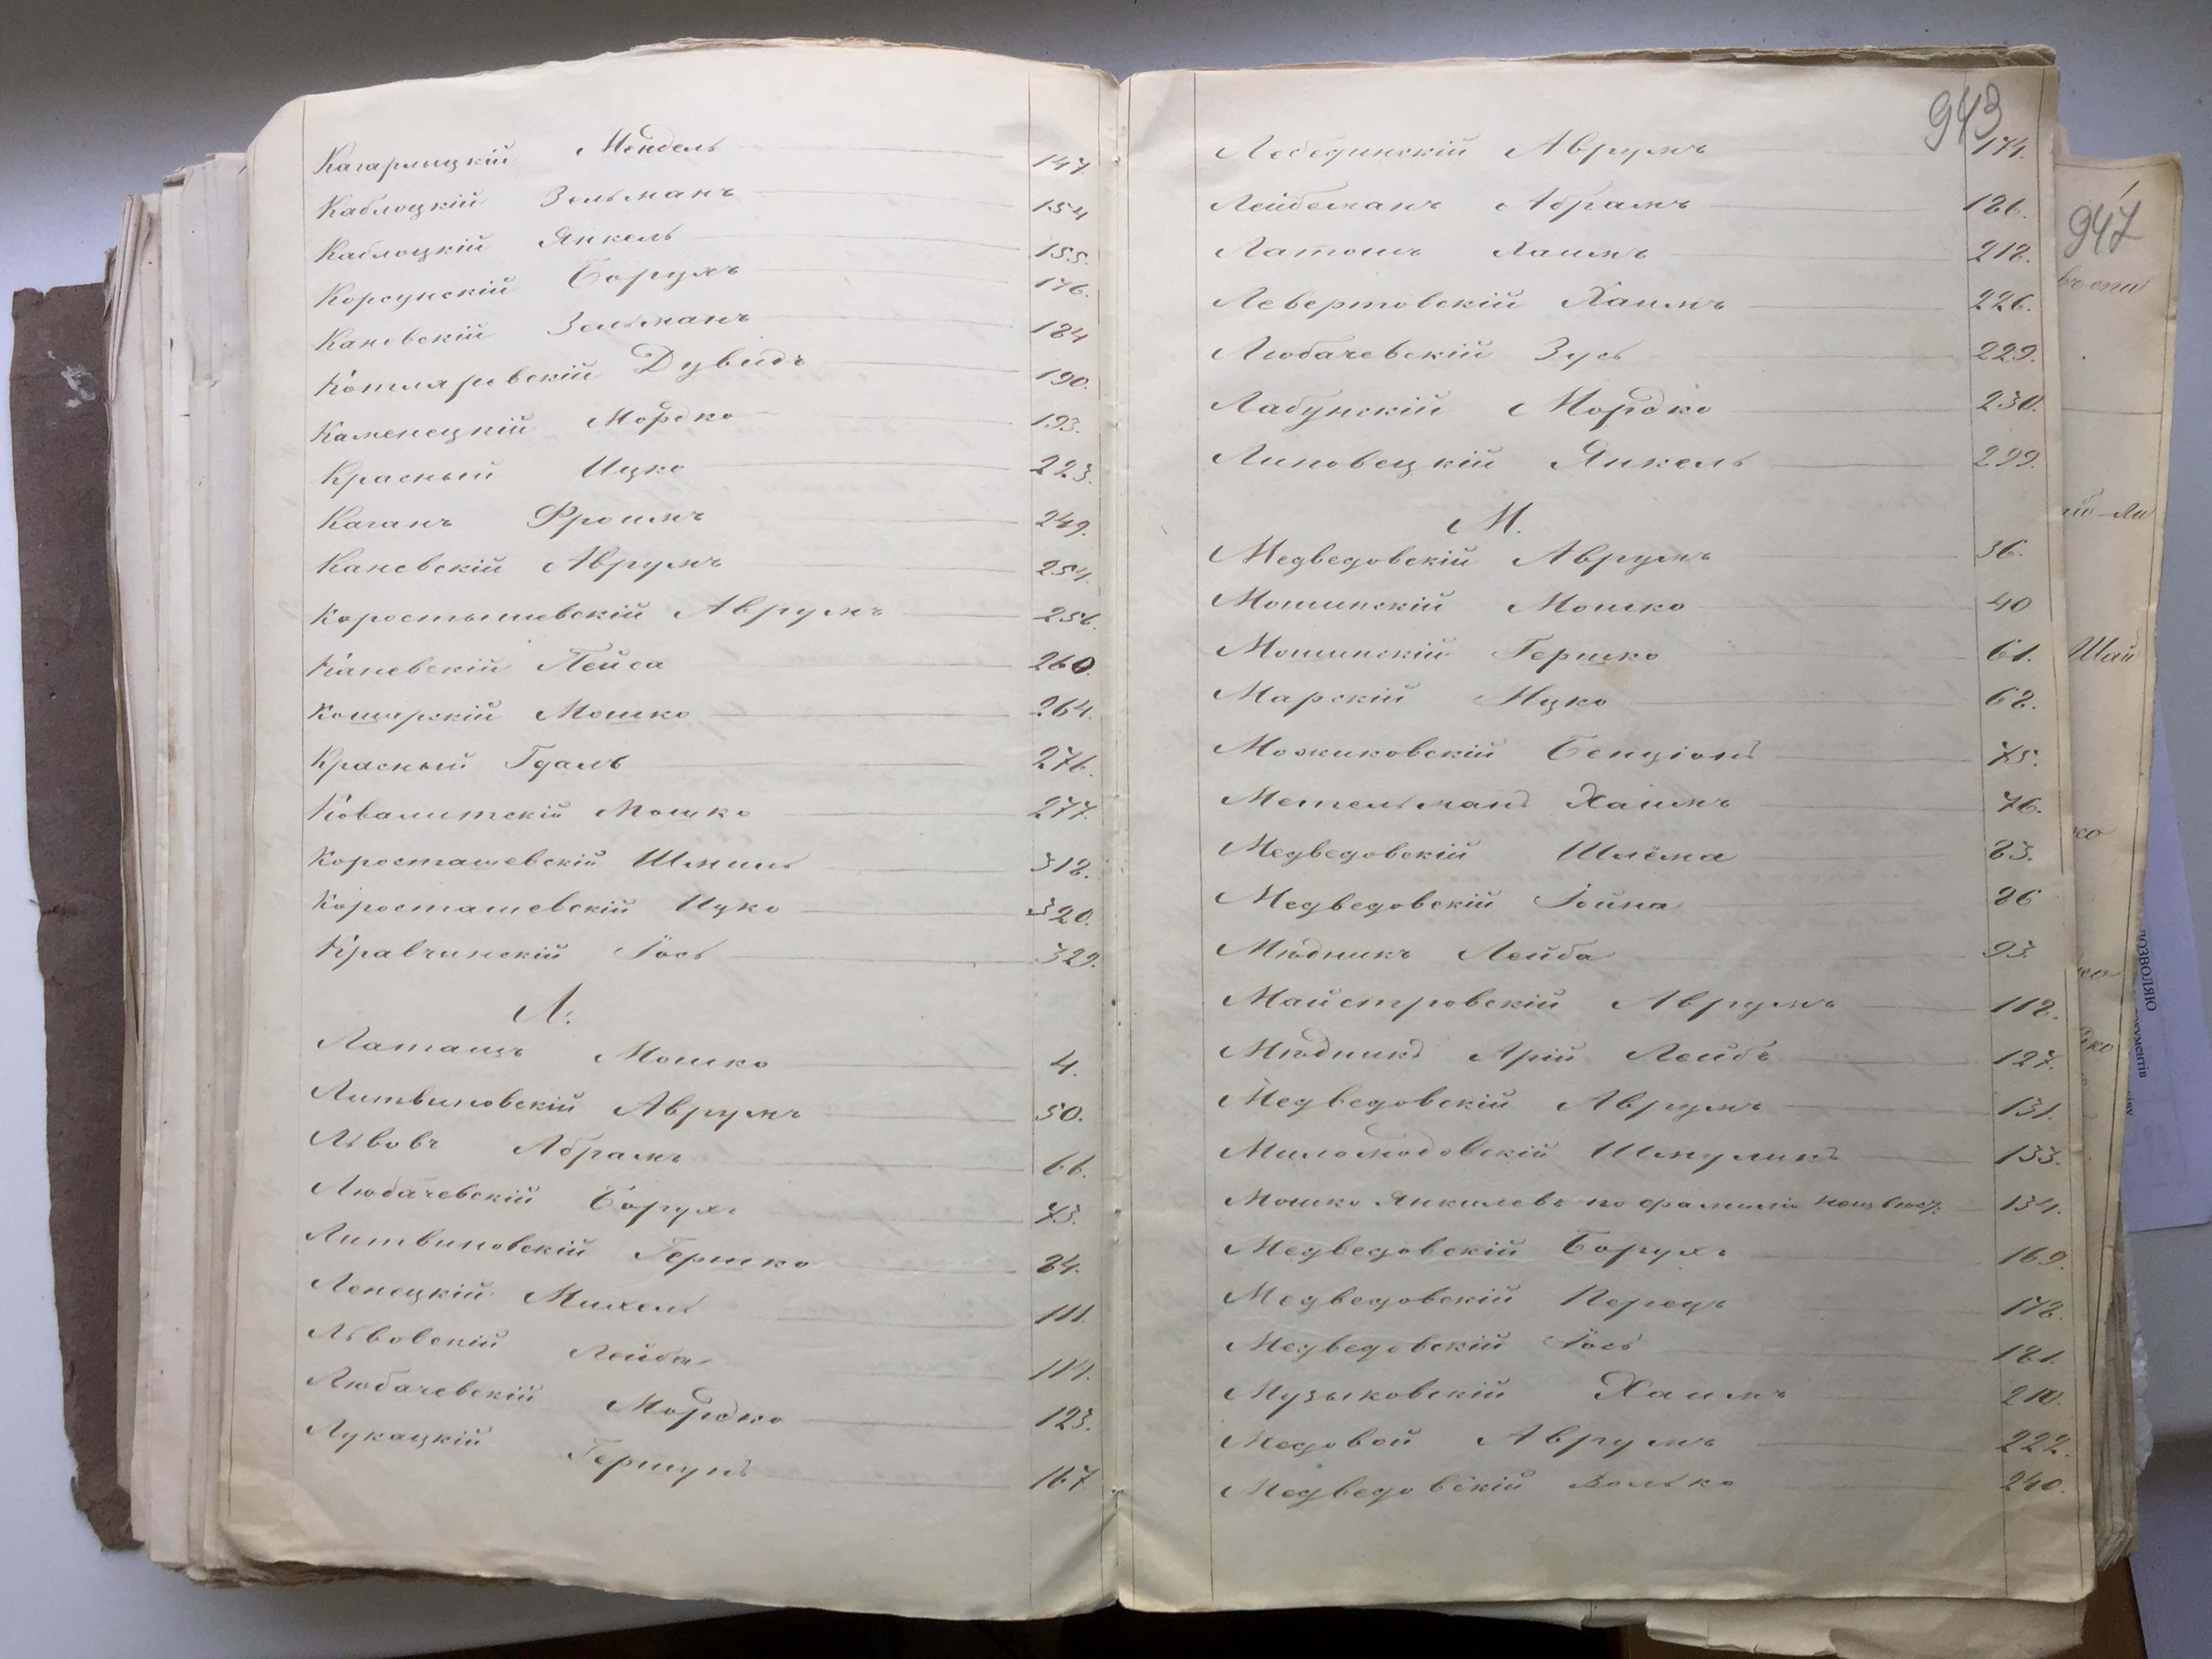 Кагарлыцкій Мендель 147.
Каблоцкій Зельманъ 154
Каблоцкій Янкель 155.
Корсунскій Борухъ 176.
Каневскій Зельманъ 184
Котляревскій Дувидъ 190.
Каменецкій Мордко 193.
Красный Ицко 223.
Каганъ Фроимъ 249.
Каневскій Аврумъ 254.
Коростышевскій Аврумъ 256.
Каневскій Пейса 260.
Кошарскій Мошко 264.
Красный Гдаль 276.
Мошко 277.
Коросташевскій Шмиль 318.
Коросташевскій Ицко 320.
Кравчинскій Іось 329.
Л.
Латашъ Мошко 4.
Литвиновскій Аврумъ 50.
Львовъ Абрамъ 66.
Любачевскій Борухъ 73.
Литвиновскій Гершко 84.
Ленецкій Михель 111.
Львовскій Лейба 114.
Любачевскій Мордко 123.
Лукацкій Гершунъ 167
943
Лебединскій Аврумъ 174.
Лейбеманъ Абрамъ 186.
Латошъ Хаимъ 218.
Левертовскій Хаимъ 226.
Любачевскій Зусь 229.
Лабунскій Мордко 230.
Липовецкій Янкель 299.
М.
Медведовскій Аврумъ 36.
Мошинскій Мошко 40
Мошинскій Гершко 61.
Марскій Ицко 68.
Можиковскій Бенціонъ 75.
Метельманъ Хаимъ 76.
Медведовскій Шлёма 83.
Медведовскій Іойна 86
Мѣдникъ Лейба 93.
Майстровскій Аврумъ 118.
Мѣдникъ Арій Лейбъ 127.
Медведовскій Аврумъ 131.
Шмуликъ 133.
Мошко Янкилевъ по фамиліи неизвѣс. 134.
Медведовскій Борухъ 169.
Медведовскій Перецъ 178.
Медведовскій Іось 181.
Музыковскій Хаимъ 210.
Медовой Аврумъ 222.
Медведовскій Волько 240.
947
Шай
ДОЗВОЛЯЮ